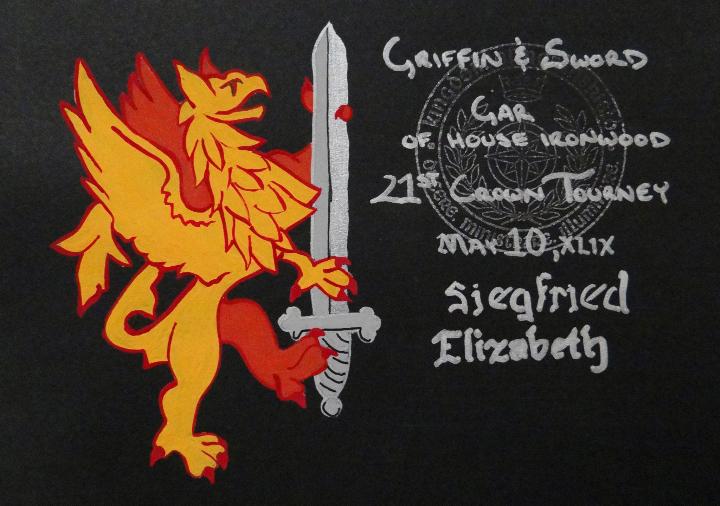 Griffin & Sword
Gar
of House Ironwood
21st Crown Tourney
May 10, XLIX
Siegfried
Elizabeth